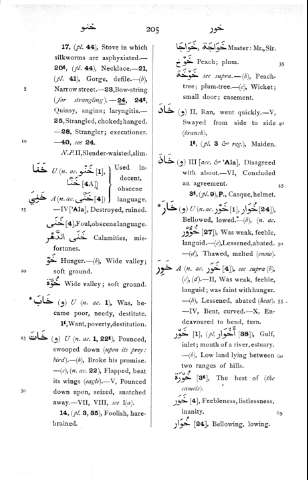 خنو
205
خور
17, (pl. 44), Stove in which
silkworms are asphyxiated.—
20⁶, (pl. 44), Necklace.—21,
(pl. 41), Gorge, defile.—(b),
Narrow street.—23, Bow-string
(for strangling).—24, 24²,
Quinsy, angina; laryngitis.—
25, Strangled, choked; hanged.
—28, Strangler; executioner.
—40, see 24.
N.P. II, Slender-waisted, slim.
خَنَا U (n. ac. خَنْو [1],
خَنًا [4A])
خَنِيَ A (n. ac. خَنًى [4])
Used in-
decent,
obscene
language.
—IV ['Ala], Destroyed, ruined.
[4], Foul, obscene language.
خَنَى الدَّهْر Calamities, mis-
fortunes.
خَوّ Hunger.—(b), Wide valley;
soft ground.
خَوَّة Wide valley; soft ground.
خَابَ (و) U (n. ac. 1), Was, be-
came poor, needy, destitute.
1ᵗ, Want, poverty, destitution.
خَاتَ (و) U (n. ac. 1, 22ᵗ), Pounced,
swooped down (upon its prey:
bird).—(b), Broke his promise.
—(c), (n. ac. 22), Flapped, beat
its wings (eagle).—V, Pounced
down upon, seized, snatched
away.—VII, VIII, see I(a).
14, (pl. 3, 35), Foolish, hare-
brained.
خَوَاجَة, خَوَاجَا Master: Mr., Sir.
خَوْخ Peach; plum.
خَوْخَة see supra.—(b), Peach-
tree; plum-tree.—(c), Wicket;
small door; easement.
خَادَ (و) II, Ran, went quickly.—V,
Swayed from side to side
(branch).
1ᵗ, (pl. 3 & reg.), Maiden.
خَاذَ (و) III [acc. & 'Ala], Disagreed
with about.—VI, Concluded
an agreement.
3ᵗ, (pl. 9), P., Casque, helmet.
خَارَ (و) U (n. ac. خَوْر [1], خُوَار [24]),
Bellowed, lowed.—(b), (n. ac.
خُؤُور [27]), Was weak, feeble,
languid.—(c), Lessened, abated.
—(d), Thawed, melted (snow).
خَوِرَ A (n. ac. خَوَر [4]), see supra (b),
(c), (d).—II, Was weak, feeble,
languid; was faint with hunger.
—(b), Lessened, abated (heat).
—IV, Bent, curved.—X, En-
deavoured to bend, turn.
خَوْر [1], (pl. أَخْوَار [38]), Gulf,
inlet; mouth of a river, estuary.
—(b), Low land lying between
two ranges of hills.
خُورَة [3ᵗ], The best of (the
camels).
خَوَر [4], Feebleness, listlessness,
inanity.
خُوَار [24], Bellowing, lowing.